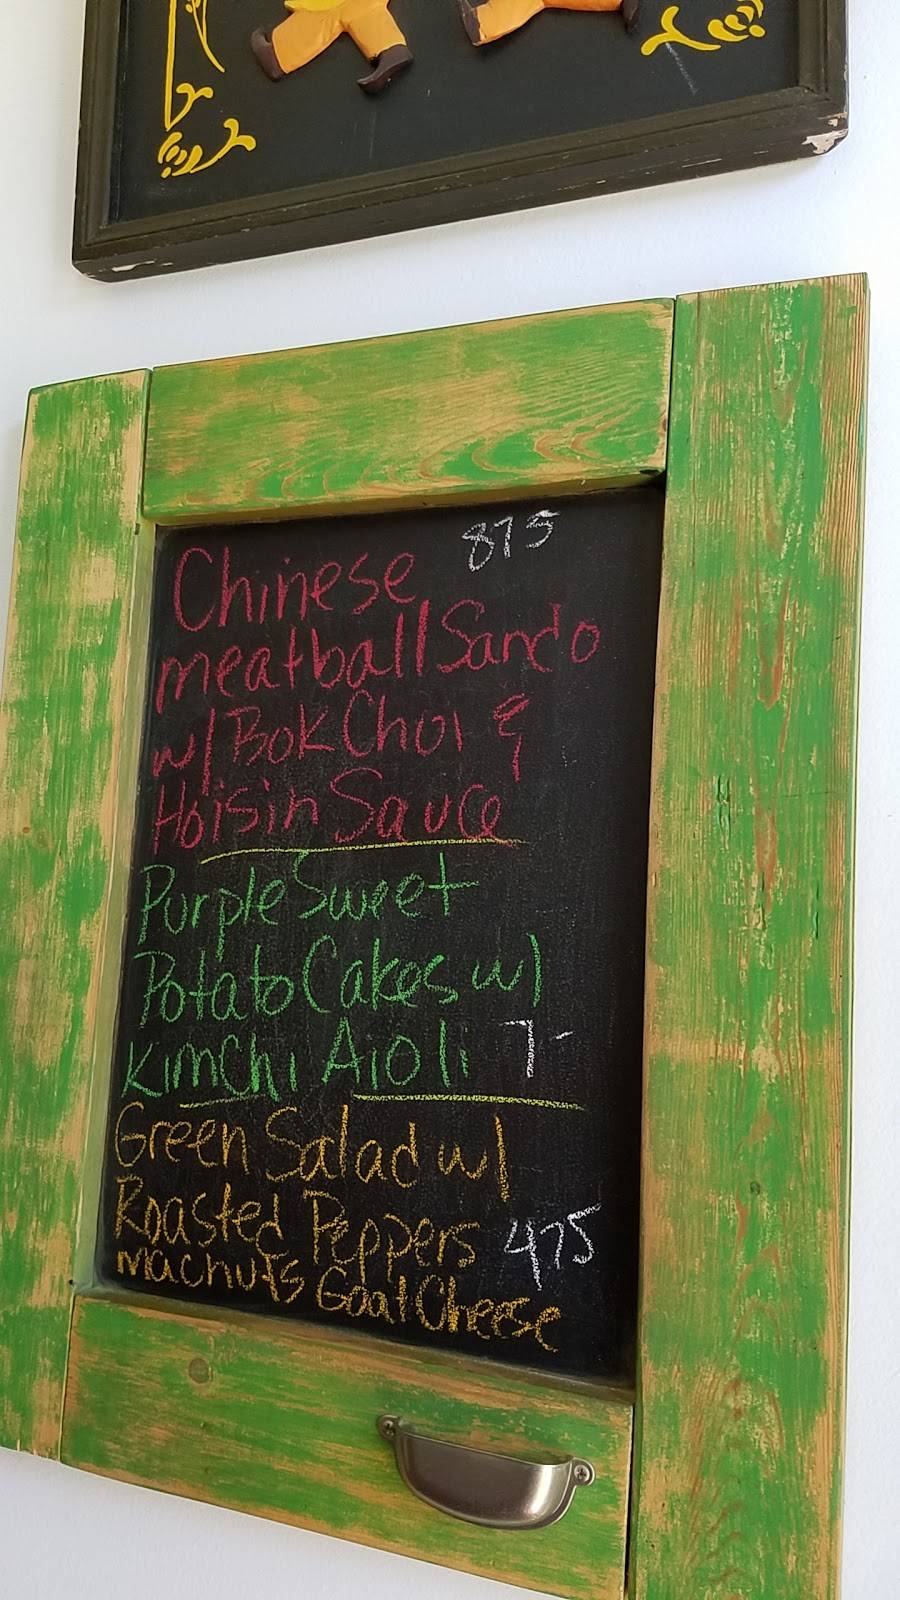 Chinese 875
meatball Sando
w/ Bok Choi &
Hoisin Sauce
Purple Sweet
Potato Cakes w/
Kimchi Aioli 7-
Green Salad w/
Roasted Peppers 475
macnuts Goat Cheese